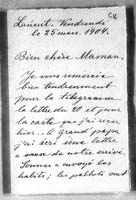 Lancut, Vendredi
le 25 mars. 1904.
Bien chère Maman,
Je vous remercie
bien tendrement
pour le télégramme
la lettre du 20 et pour
la carte que j'ai reçue
hier. A grand papa
j'ai écri une lettre
Sommes a envoyé les
habits; les paletots ont